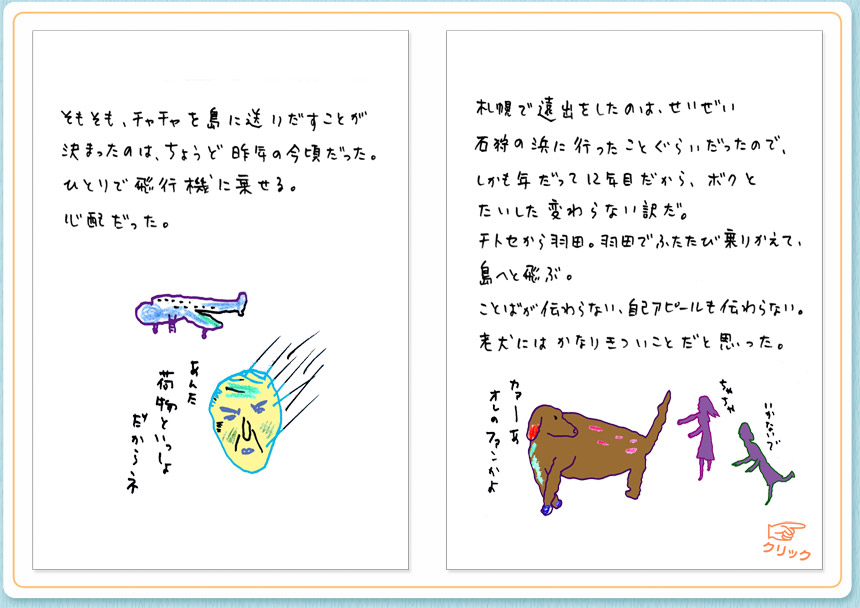 そもそも、チャチャを島に送りだすことが
決まったのは、ちょうど昨年の今頃だった。
ひとりで飛行機に乗せる。
心配だった。
あんた
荷物といっしょ
だからネ
札幌で遠出をしたのは、せいぜい
石狩の浜に行ったことぐらいだったので、
しかも年だって12年目だから、ボクと
たいした変わらない訳だ。
チトセから羽田。羽田でふたたび乗りかえて、
島へと飛ぶ。
ことばが伝わらない、自己アピールも伝わらない。
老犬にはかなりきついことだと思った。
カァーあ
オレのファンかよ
ちゃちゃ
いかないで
クリック